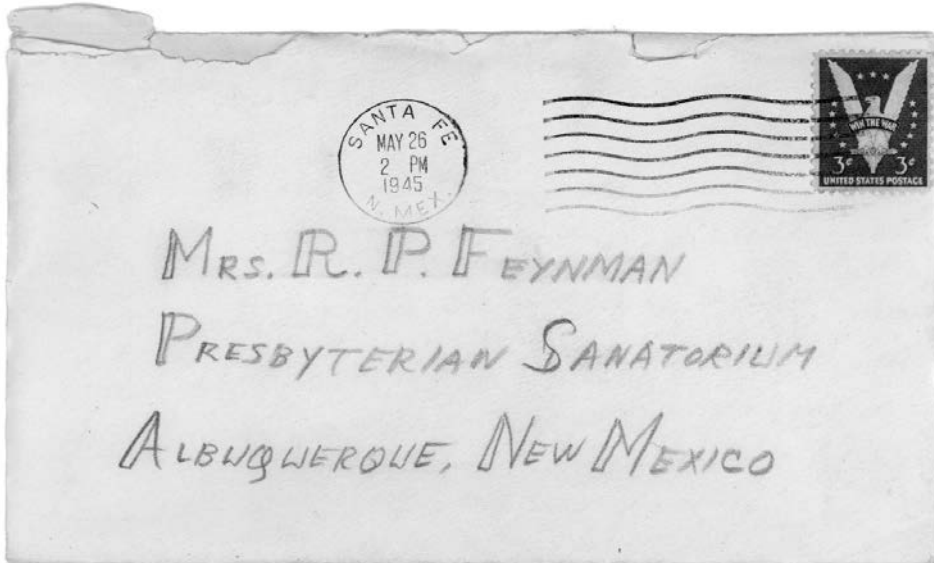 SANTA FE
MAY 26
2 PM
1945
N. MEX.
WIN THE WAR
3¢ 3¢
UNITED STATES POSTAGE
MRS. R. P. FEYNMAN
PRESBYTERIAN SANATORIUM
ALBUQUERQUE, NEW MEXICO